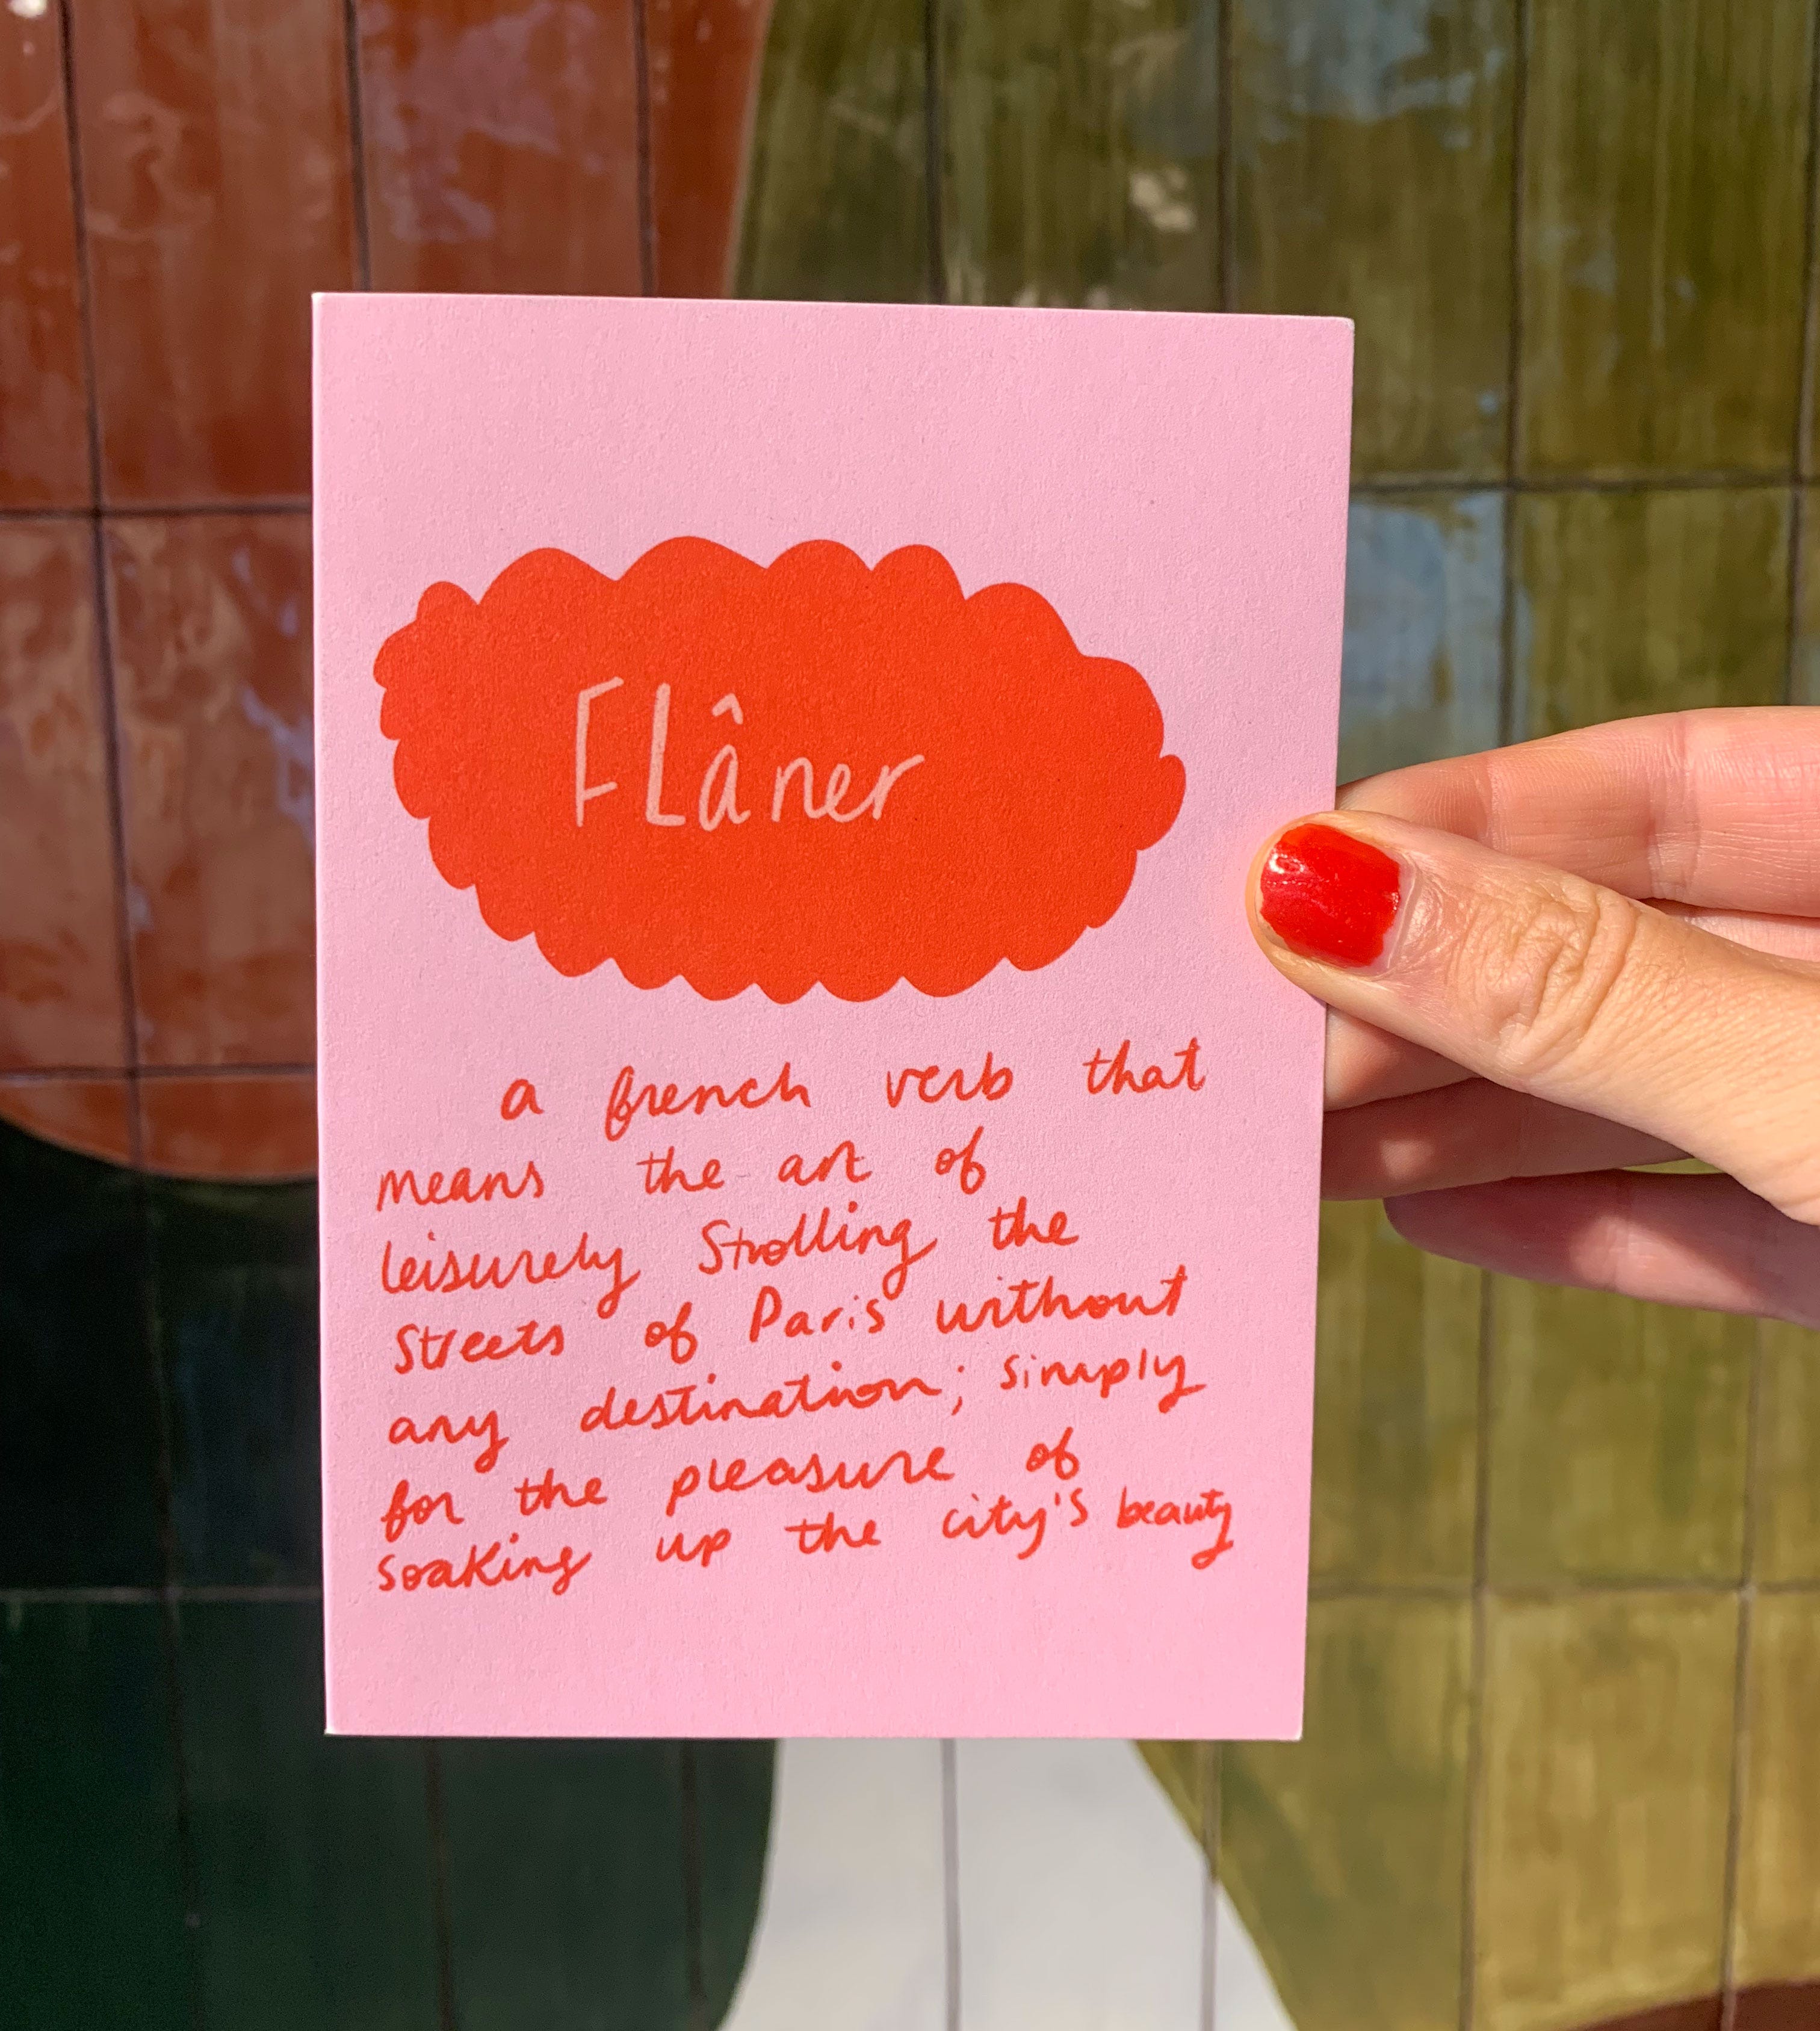 FLâner
a french verb that
means the art of
leisurely Strolling the
Streets of Paris without
any destination; simply
for the pleasure of
soaking up the city's beauty